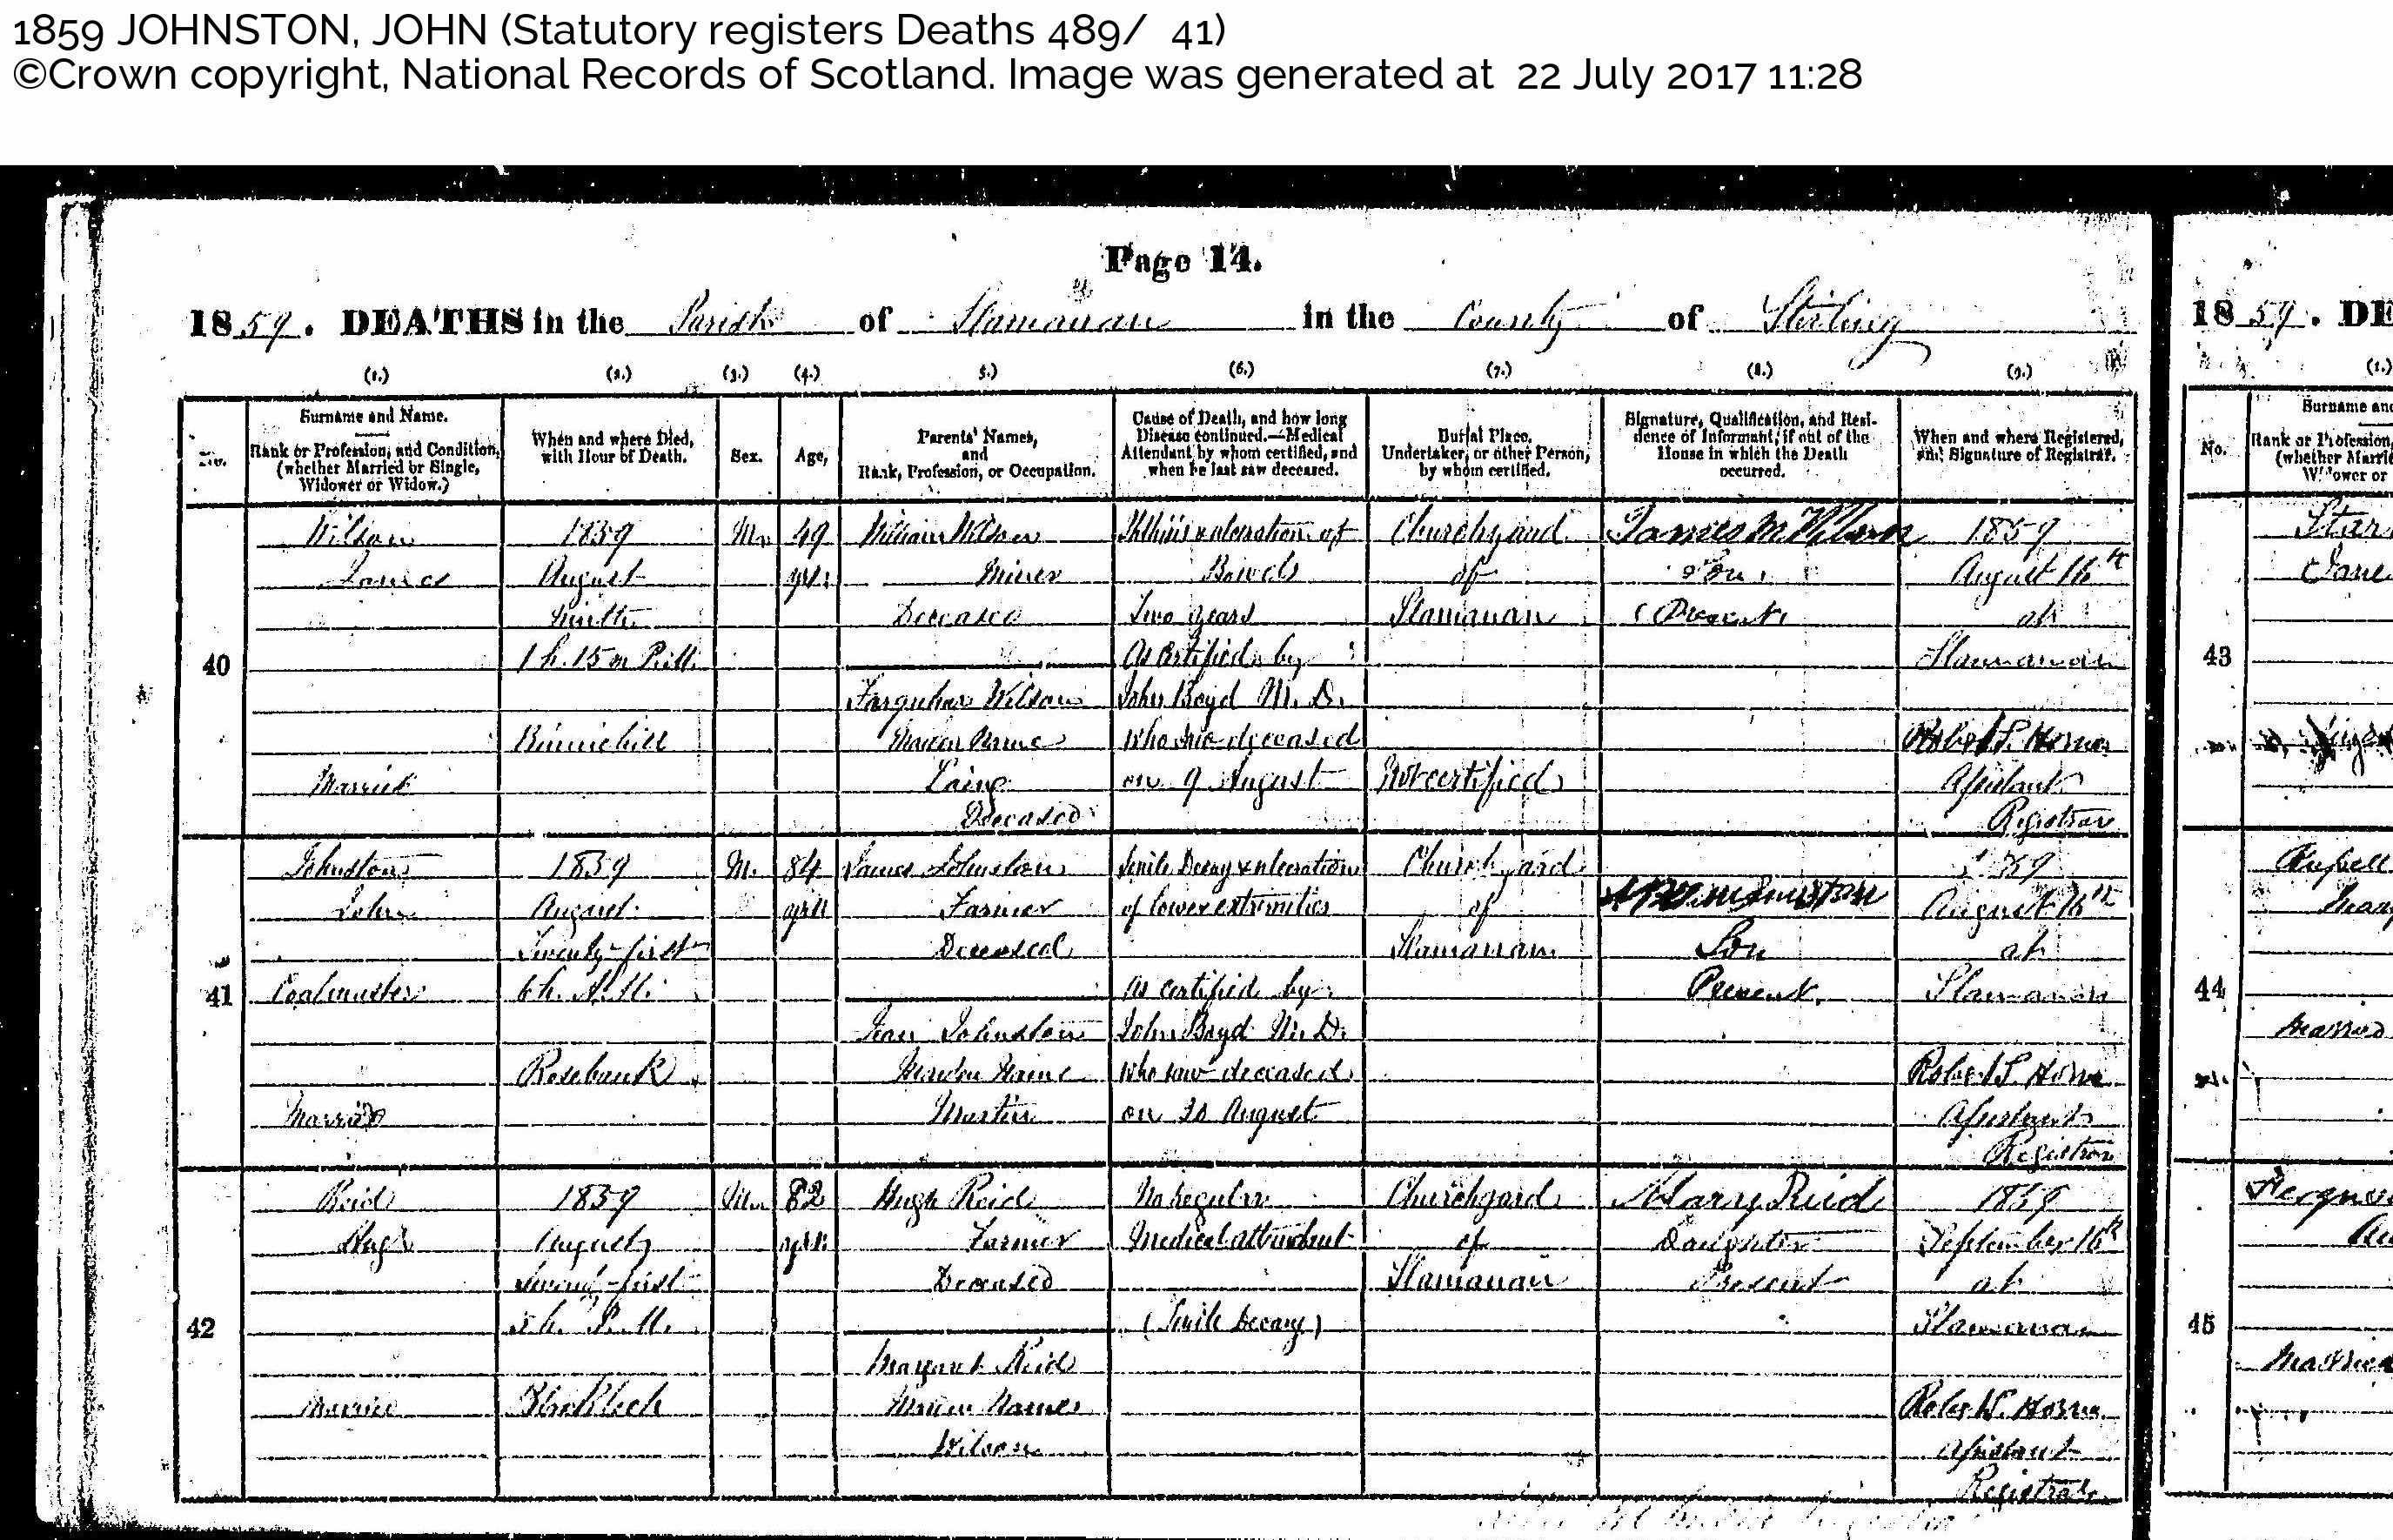 1859 JOHNSTON, JOHN (Statutory registers Deaths 489/ 41)
©Crown copyright, National Records of Scotland. Image was generated at 22 July 2017 11:28
Page 14.
1859. DEATHS in the Parish of Slamanan in the County of Stirling
(1.) (2.) (3.) (4.) (5.) (6.) (7.) (8.) (9.)
No.
Surname and Name.
Rank or Profession, and Condition,
(whether Married or Single,
Widower or Widow.)
When and where Died,
with Hour of Death.
Sex.
Age,
Parents' Names,
and
Rank, Profession, or Occupation.
Cause of Death, and how long
Disease continued.—Medical
Attendant by whom certified, and
when he last saw deceased.
Burial Place.
Undertaker, or other Person,
by whom certified.
Signature, Qualification, and Resi-
dence of Informant, if out of the
House in which the Death
occurred.
When and where Registered,
and Signature of Registrar.
40
Wilson
James
Married
1859
August
Ninth
1 h. 15 m P.M.
Binniehill
M.
49
yrs.
William Wilson
Miner
Deceased
Farquhar Wilson
Maiden Name
Laing
Deceased
Phthisis & ulceration of
Bowels
Two years
As certified by
John Boyd M.D.
who saw deceased
on 9 August
Churchyard
of
Slamanan
Not certified
James M Wilson
Son
(Present)
1859
August 16th
at
Slamanan
Robert S. Horne
Assistant
Registrar
41
Johnston
John
Coalmaster
Married
1859
August
Twenty-first
6 h. A.M.
Rosebank
M.
84
yrs
James Johnston
Farmer
Deceased
Jean Johnston
Maiden Name
Martin
Senile Decay & ulceration
of lower extremities
As certified by
John Boyd M.D.
who saw deceased
on 20 August
Churchyard
of
Slamanan
Johnston
Son
Present.
1859
August
at
Slamanan
Robert S. Horne
Assistant
Registrar
42
Reid
Hugh
Married
1859
August
Twenty-first
5 h. P.M.
M.
82
yrs.
Hugh Reid
Farmer
Deceased
Margaret Reid
Maiden Name
Wilson
No regular
Medical attendant
(Senile Decay)
Churchyard
of
Slamanan
Mary Reid
Daughter
Present
1859
September 16th
at
Slamanan
Robert S. Horne
Assistant
Registrar
1859. DE
(1.)
No.
Surname and
Rank or Profession,
(whether Marrie
Widower or
43
Jane
44
Russell
Married
45
Married